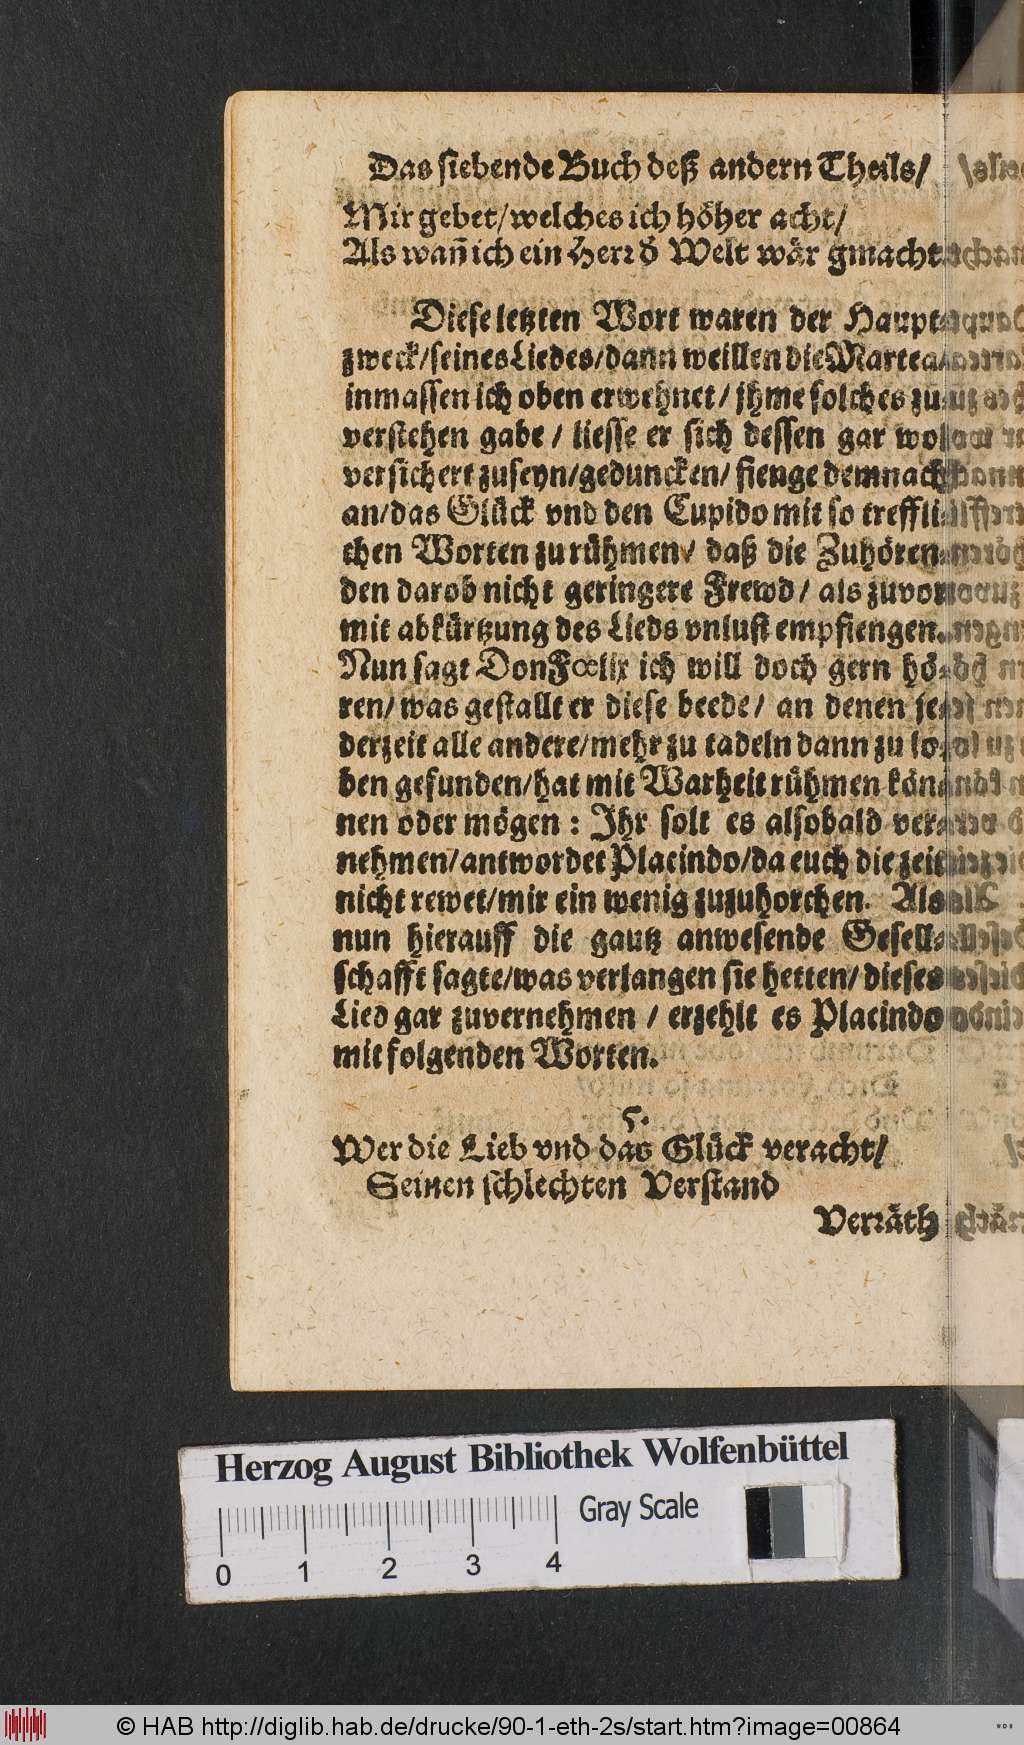 Das siebende Buch deß andern Theils/
Mir gebet/welches ich höher acht/
Als wañ ich ein Herr d̕ Welt wär gmacht.
Diese letzten Wort waren der Haupt-
zweck/seines Liedes/dann weillen die Martea/
inmassen ich oben erwehnet/ jhme solches zu
verstehen gabe / liesse er sich dessen gar wol
versichert zuseyn/geduncken/ fienge demnach
an/das Glück vnd den Cupido mit so treffli-
chen Worten zu rühmen/ daß die Zuhören-
den darob nicht geringere Frewd/ als zuvor
mit abkürtzung des Lieds vnlust empfiengen.
Nun sagt Don Fœlix ich will doch gern hö-
ren/ was gestallt er diese beede/ an denen je-
derzeit alle andere/mehr zu tadeln dann zu lo-
ben gefunden/hat mit Warheit rühmen kön-
nen oder mögen : Ihr solt es alsobald ver-
nehmen/antwordet Placindo/da euch die zeit
nicht rewet/mir ein wenig zuzuhorchen. Als
nun hierauff die gautz anwesende Gesell-
schafft sagte/was verlangen sie hetten/ dieses
Lied gar zuvernehmen / erzehlt es Placindo
mit folgenden Worten.
5.
Wer die Lieb vnd das Glück veracht/
Seinen schlechten Verstand
Verräth
Herzog August Bibliothek Wolfenbüttel
Gray Scale
0 1 2 3 4
© HAB http://diglib.hab.de/drucke/90-1-eth-2s/start.htm?image=00864